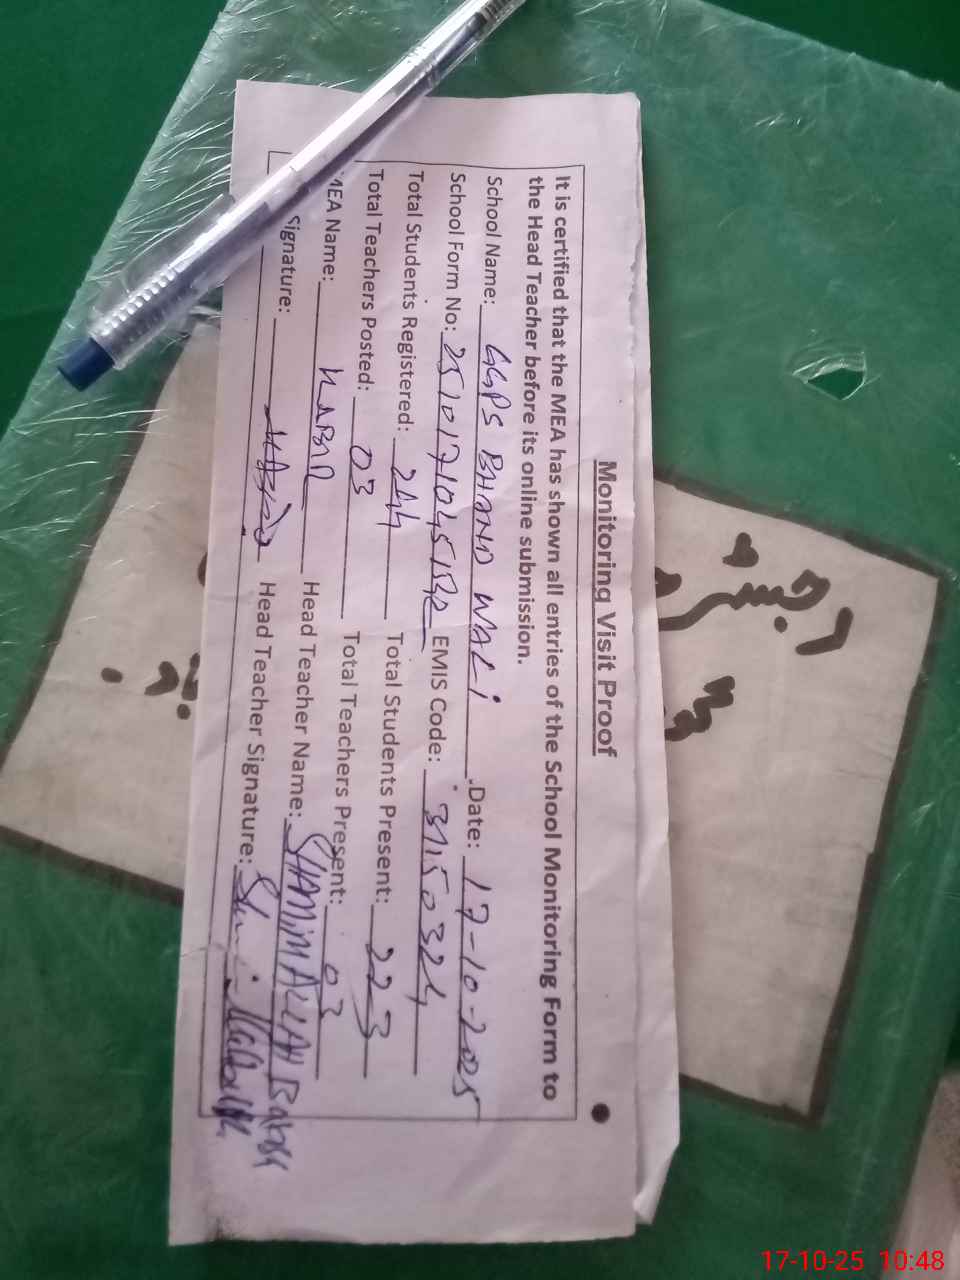 Monitoring Visit Proof
It is certified that the MEA has shown all entries of the School Monitoring Form to
the Head Teacher before its online submission.
School Name: GGPS BHAND WALI Date: 17-10-2025
School Form No: EMIS Code: 31150324
Total Students Registered: 244 Total Students Present: 223
Total Teachers Posted: 03 Total Teachers Present: 03
MEA Name: KABIR Head Teacher Name: SHAMIM ALLAH BAKHSH
Signature: Head Teacher Signature:
17-10-25 10:48